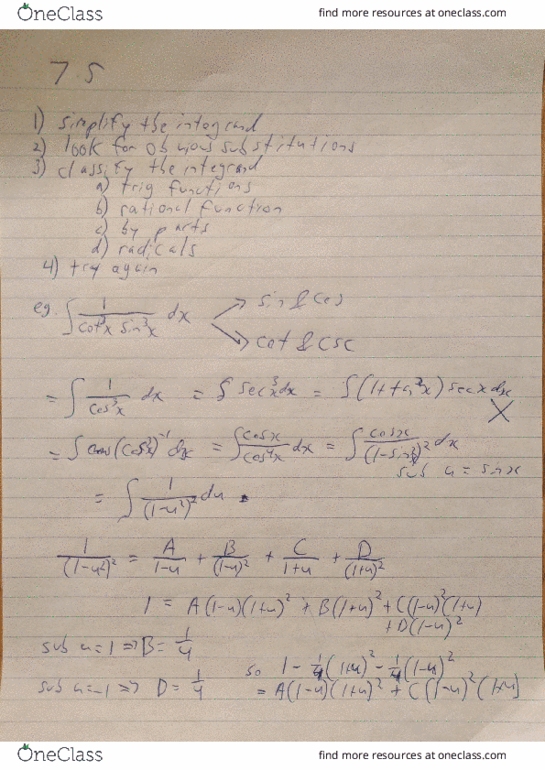 OneClass
find more resources at oneclass.com
7.5
1) simplify the integrand
2) look for obvious substitutions
3) classify the integrand
a) trig functions
b) rational function
c) by parts
d) radicals
4) try again
eg. ∫ 1/(cot³x sin³x) dx → sin & cos
→ cot & csc
= ∫ 1/cos³x dx = ∫ sec³x dx = ∫ (1+tan²x) sec x dx
X
= ∫ cos x/cos⁴x dx = ∫ cos x/(1-sin²x)² dx
sub u = sin x
= ∫ 1/(1-u²)² du
1/(1-u²)² = A/(1-u) + B/(1-u)² + C/(1+u) + D/(1+u)²
1 = A(1-u)(1+u)² + B(1+u)² + C(1-u)²(1+u)
+ D(1-u)²
sub u=1 ⇒ B = 1/4
sub u=-1 ⇒ D = 1/4
so 1 - 1/4(1+u)² - 1/4(1-u)²
= A(1-u)(1+u)² + C(1-u)²(1+u)
OneClass
find more resources at oneclass.com